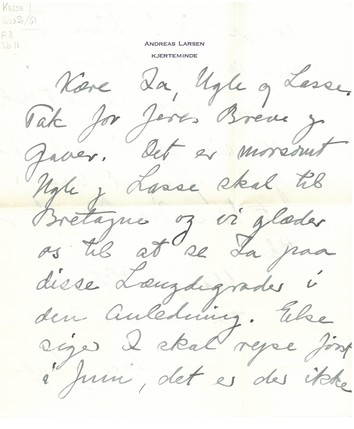 Kasse 1
ANDREAS LARSEN
KJERTEMINDE
Kære Ia, Ugle og Lasse.
Tak for Jeres Breve og
Gaver. Det er morsomt
Ugle og Lasse skal til
Bretagne og vi glæder
os til at se Ia paa
disse Længdegrader i
den Anledning. Else
siger I skal rejse først
i Juni, det er der ikke